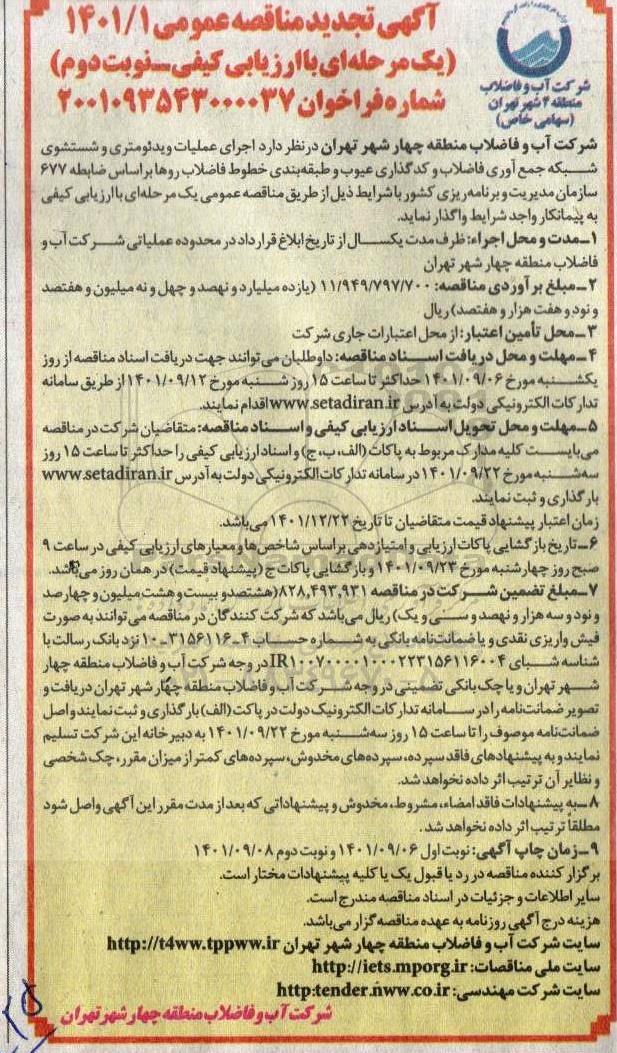 آگهی تجدید مناقصه عمومی ۱۴۰۱/۱
(یک مرحله‌ای با ارزیابی کیفی ـ نوبت دوم)
شماره فراخوان ۲۰۰۱۰۹۳۵۴۳۰۰۰۰۳۷
شرکت آب و فاضلاب
منطقه ۴ شهر تهران
(سهامی خاص)
شرکت آب و فاضلاب منطقه چهار شهر تهران در نظر دارد اجرای عملیات ویدئومتری و شستشوی
شبکه جمع آوری فاضلاب و کدگذاری عیوب و طبقه‌بندی خطوط فاضلاب روها بر اساس ضابطه ۶۷۷
سازمان مدیریت و برنامه ریزی کشور با شرایط ذیل از طریق مناقصه عمومی یک مرحله‌ای با ارزیابی کیفی
به پیمانکار واجد شرایط واگذار نماید.
۱ـ مدت و محل اجراء: ظرف مدت یکسال از تاریخ ابلاغ قرارداد در محدوده عملیاتی شرکت آب و
فاضلاب منطقه چهار شهر تهران
۲ـ مبلغ برآوردی مناقصه: ۱۱/۹۴۹/۷۹۷/۷۰۰ (یازده میلیارد و نهصد و چهل و نه میلیون و هفتصد
و نود و هفت هزار و هفتصد) ریال
۳ـ محل تأمین اعتبار: از محل اعتبارات جاری شرکت
۴ـ مهلت و محل دریافت اسناد مناقصه: داوطلبان می‌توانند جهت دریافت اسناد مناقصه از روز
یکشنبه مورخ ۱۴۰۱/۰۹/۰۶ حداکثر تا ساعت ۱۵ روز شنبه مورخ ۱۴۰۱/۰۹/۱۲ از طریق سامانه
تدارکات الکترونیکی دولت به آدرس www.setadiran.ir اقدام نمایند.
۵ـ مهلت و محل تحویل اسناد ارزیابی کیفی و اسناد مناقصه: متقاضیان شرکت در مناقصه
می‌بایست کلیه مدارک مربوط به پاکات (الف، ب، ج) و اسناد ارزیابی کیفی را حداکثر تا ساعت ۱۵ روز
سه‌شنبه مورخ ۱۴۰۱/۰۹/۲۲ در سامانه تدارکات الکترونیکی دولت به آدرس www.setadiran.ir
بارگذاری و ثبت نمایند.
زمان اعتبار پیشنهاد قیمت متقاضیان تا تاریخ ۱۴۰۱/۱۲/۲۲ می‌باشد.
۶ـ تاریخ بازگشایی پاکات ارزیابی و امتیازدهی بر اساس شاخص‌ها و معیارهای ارزیابی کیفی در ساعت ۹
صبح روز چهارشنبه مورخ ۱۴۰۱/۰۹/۲۳ و بازگشایی پاکات ج (پیشنهاد قیمت) در همان روز می‌باشد.
۷ـ مبلغ تضمین شرکت در مناقصه ۸۲۸,۴۹۳,۹۳۱ (هشتصد و بیست و هشت میلیون و چهارصد
و نود و سه هزار و نهصد و سی و یک) ریال می‌باشد که شرکت کنندگان در مناقصه می‌توانند به صورت
فیش واریزی نقدی و یا ضمانت‌نامه بانکی به شماره حساب ۴ـ۳۱۵۶۱۱۶ـ۱۰ نزد بانک رسالت با
شناسه شبای IR۱۰۰۷۰۰۰۰۱۰۰۰۲۲۳۱۵۶۱۱۶۰۰۴ در وجه شرکت آب و فاضلاب منطقه چهار
شهر تهران و یا چک بانکی تضمینی در وجه شرکت آب و فاضلاب منطقه چهار شهر تهران دریافت و
تصویر ضمانت‌نامه را در سامانه تدارکات الکترونیک دولت در پاکت (الف) بارگذاری و ثبت نمایند و اصل
ضمانت‌نامه موصوف را تا ساعت ۱۵ روز سه‌شنبه مورخ ۱۴۰۱/۰۹/۲۲ به دبیرخانه این شرکت تسلیم
نمایند و به پیشنهادهای فاقد سپرده، سپرده‌های مخدوش، سپرده‌های کمتر از میزان مقرر، چک شخصی
و نظایر آن ترتیب اثر داده نخواهد شد.
۸ـ به پیشنهادات فاقد امضاء، مشروط، مخدوش و پیشنهاداتی که بعد از مدت مقرر این آگهی واصل شود
مطلقاً ترتیب اثر داده نخواهد شد.
۹ـ زمان چاپ آگهی: نوبت اول ۱۴۰۱/۰۹/۰۶ و نوبت دوم ۱۴۰۱/۰۹/۰۸
برگزار کننده مناقصه در رد یا قبول یک یا کلیه پیشنهادات مختار است.
سایر اطلاعات و جزئیات در اسناد مناقصه مندرج است.
هزینه درج آگهی روزنامه به عهده مناقصه‌گزار می‌باشد.
سایت شرکت آب و فاضلاب منطقه چهار شهر تهران http://t4ww.tppww.ir
سایت ملی مناقصات: http://iets.mporg.ir
سایت شرکت مهندسی: http:tender.nww.co.ir
شرکت آب و فاضلاب منطقه چهار شهر تهران